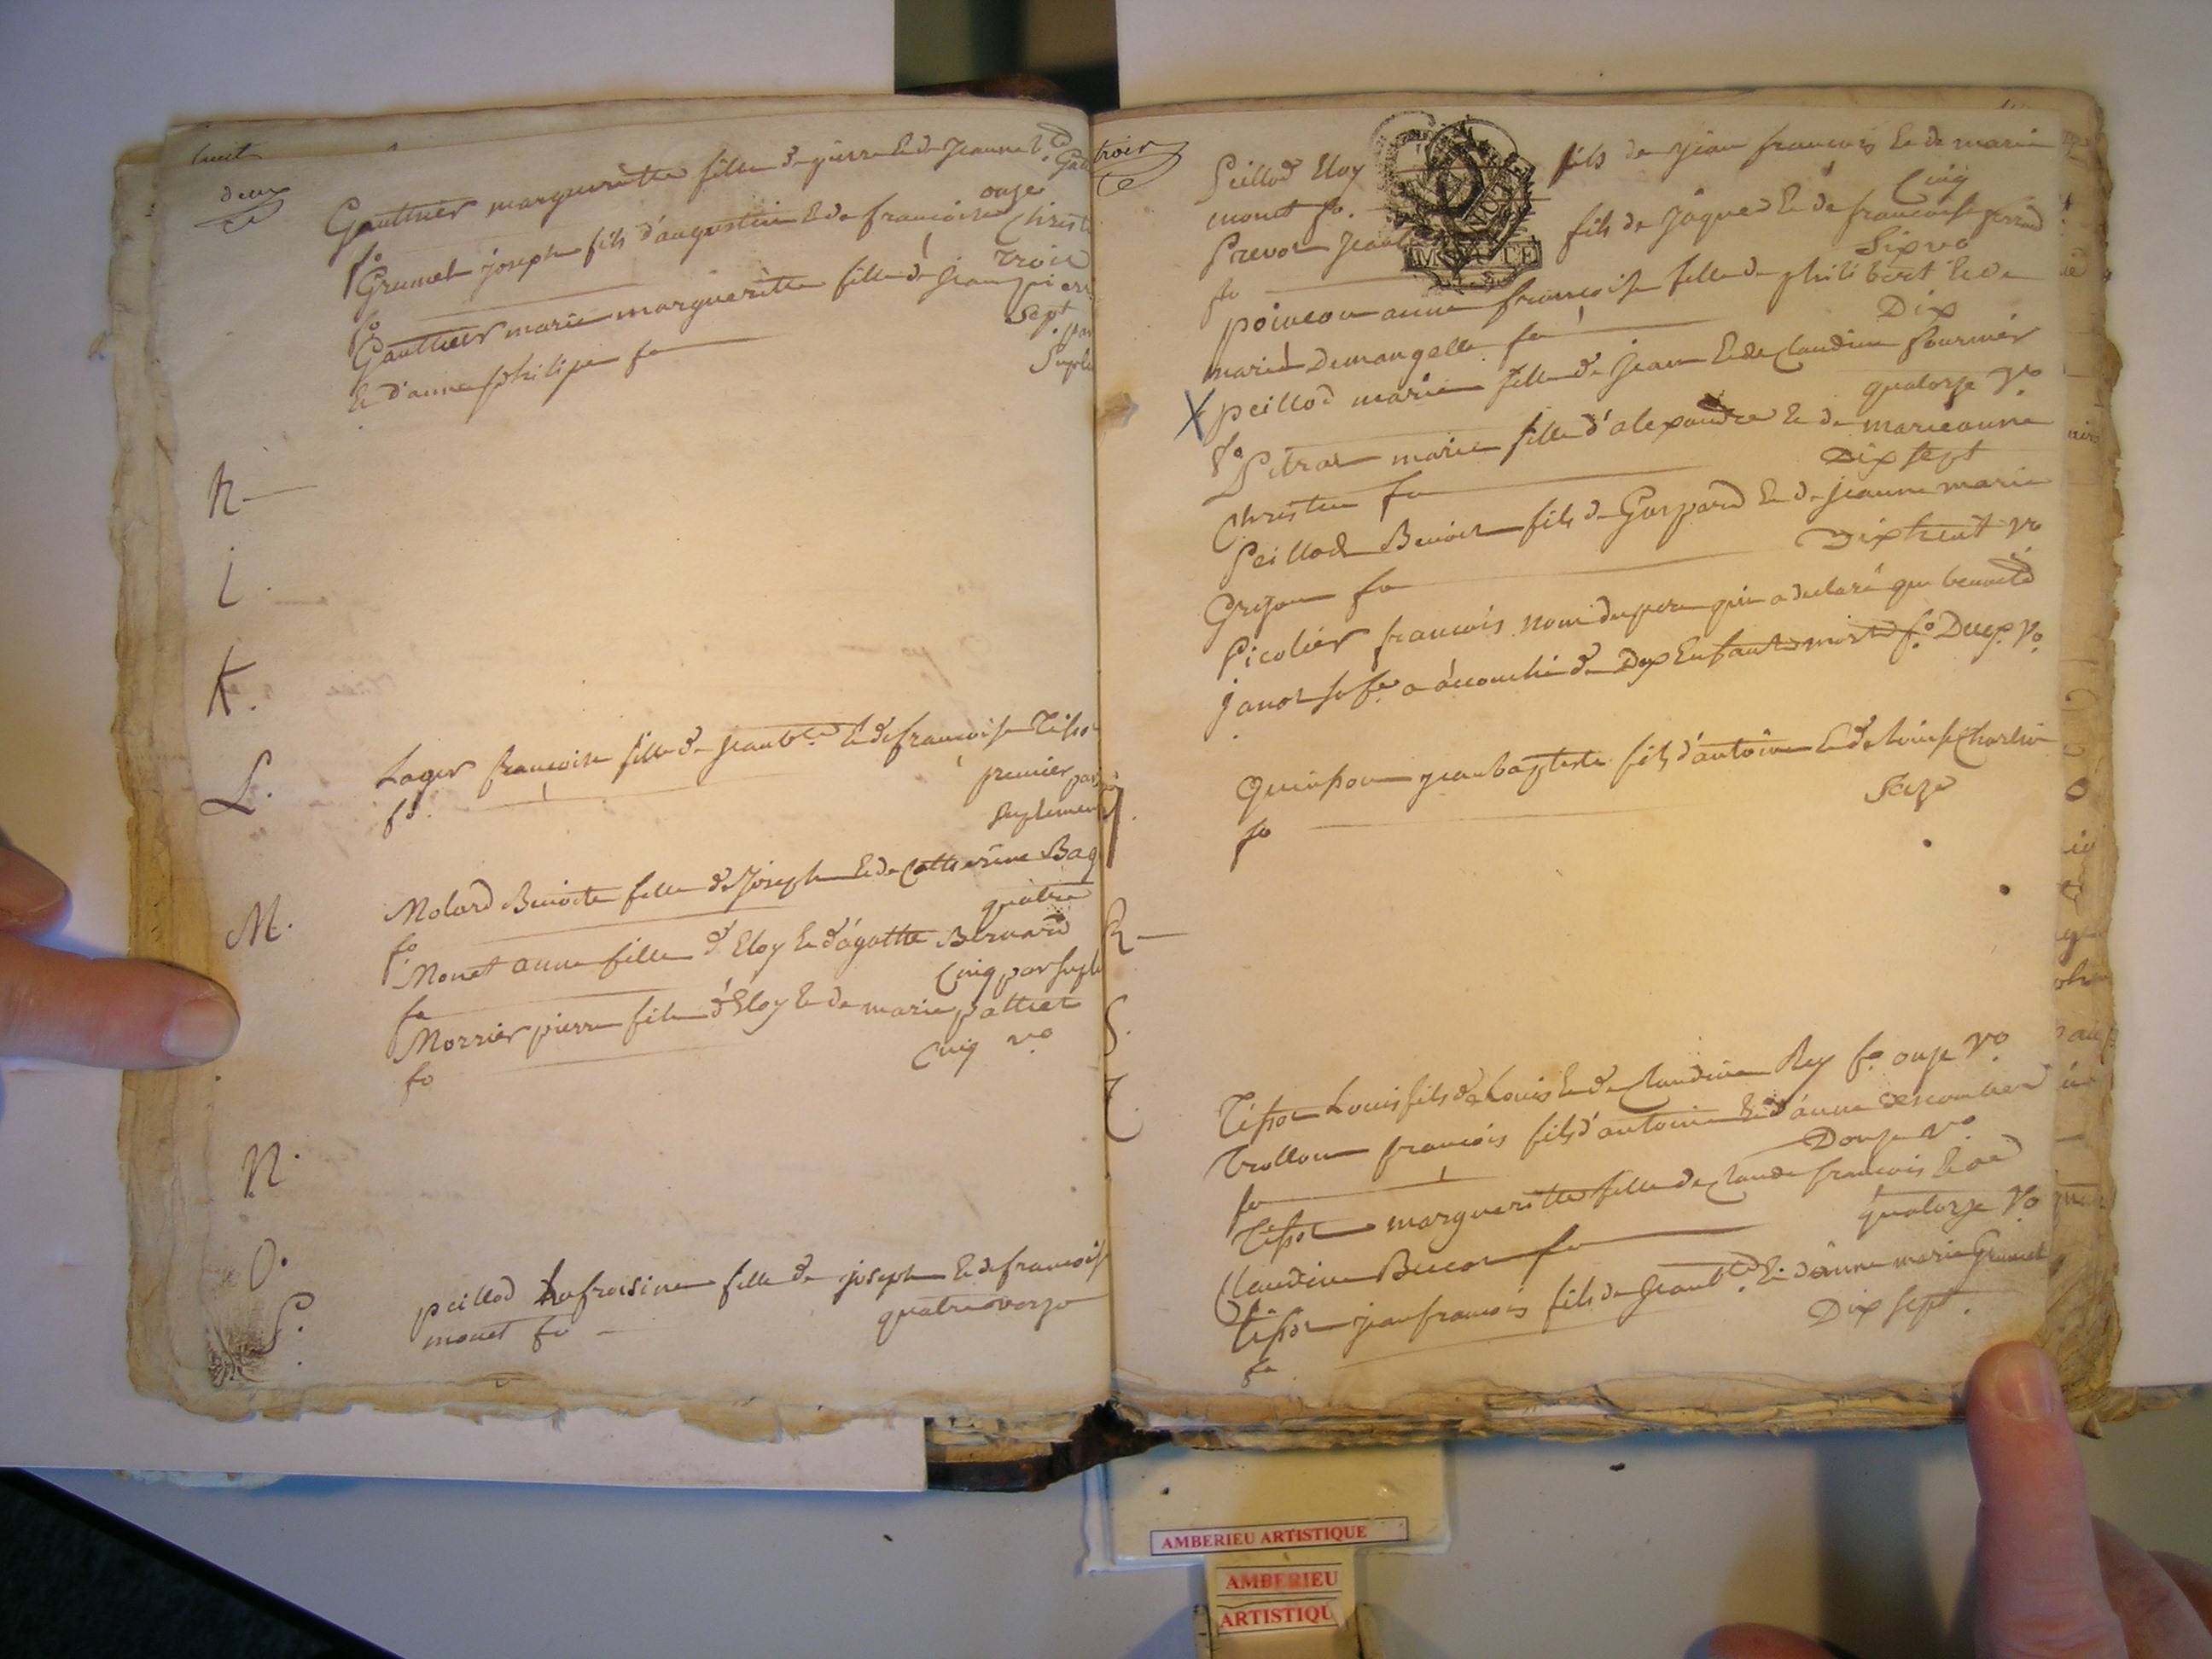 huit
deux
Gauthier margueritte fille de pierre & de Jeanne
fo onze
Grumet joseph fils d'augustin & de françoise Christ
fo trois
Gauthier marie margueritte fille de Jean pierre
& d'anne philipe fo sept par
Suple
h
i.
K.
L. Lager françoise fille de Jean bte & de françoise Tissot
fo. premier par
suplement
M. Molard Benoite fille de Joseph & de Catherine Bag
fo quatre
Monet anne fille d'Eloy & d'agatthe Bernard
fo Cinq par suple
Morrier pierre fils d'Eloy & de marie pattiet
fo Cinq vo
N.
O.
P. peillod fille de joseph & de françoise
monet fo quatre verso
trois
Peillod Eloy fils de jean françois & de marie
monet fo. Cinq
Prevot Jean fils de Jâques & de françoise
fo Six vo
poincon anne françoise fille de philibert & de
marie Demangelle fo Dix
X peillod marie fille de Jean & de Claudine fournier
fo quatorze Vo
Pitrat marie fille d'alexandre & de marieanne
Christin fo Dix sept
Peillod Benoit fils de Gaspard & de jeanne marie
fo Dix huit vo
Picolier françois nom du pere qui a declaré que benoite
janot sa fe a accouché de Deux Enfants morts fo Deux vo
q. Quinson jean baptiste fils d'antoine & de Louise Charlin
fo Seize
R
S.
T. Tissot Louis fils de Louis & de Claudine Rey fo onze vo
Trollon françois fils d'antoine & d'anne Descombes
fo Douze vo
Tissot margueritte fille de Claude françois & de
Claudine fo quatorze Vo
Tissot jean françois fils de Jean bte & d'anne marie Grumet
fo Dix sept.
AMBERIEU ARTISTIQUE
AMBERIEU
ARTISTIQU